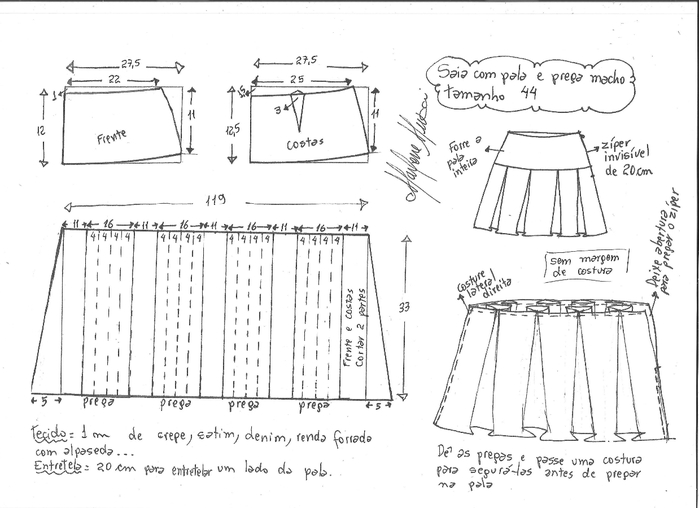 Saia com pala e prega macho
tamanho 44
27,5
22
1
12
11
Frente
27,5
25
1,5
3
12,5
11
costas
Forre a
pala
inteira
zíper
invisível
de 20cm
119
11 16 11 16 11 16 11 16 11
4 4 4 4 4 4 4 4 4 4 4 4 4 4 4 4
Frente e costas
Cortar 2 partes
33
5
prega prega prega prega
5
sem margem
de costura
Costure
lateral
direita
Deixe abertura
para pregar o zíper
Tecido = 1 m de crepe, cetim, denim, renda forrada
com alpaseda...
Entretela = 20 cm para entretelar um lado da pala.
Dê as pregas e passe uma costura
para segurá-las antes de pregar
na pala